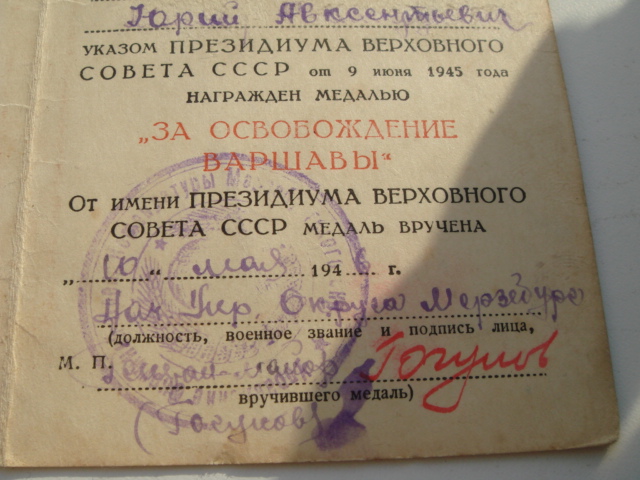 Юрий Авксентьевич
УКАЗОМ ПРЕЗИДИУМА ВЕРХОВНОГО
СОВЕТА СССР от 9 июня 1945 года
НАГРАЖДЕН МЕДАЛЬЮ
„ЗА ОСВОБОЖДЕНИЕ
ВАРШАВЫ“
ОТ ИМЕНИ ПРЕЗИДИУМА ВЕРХОВНОГО
СОВЕТА СССР МЕДАЛЬ ВРУЧЕНА
„10“ мая 1946 г.
Нач Округа Мерзебург
(должность, военное звание и подпись лица,
М. П. майор
вручившего медаль)